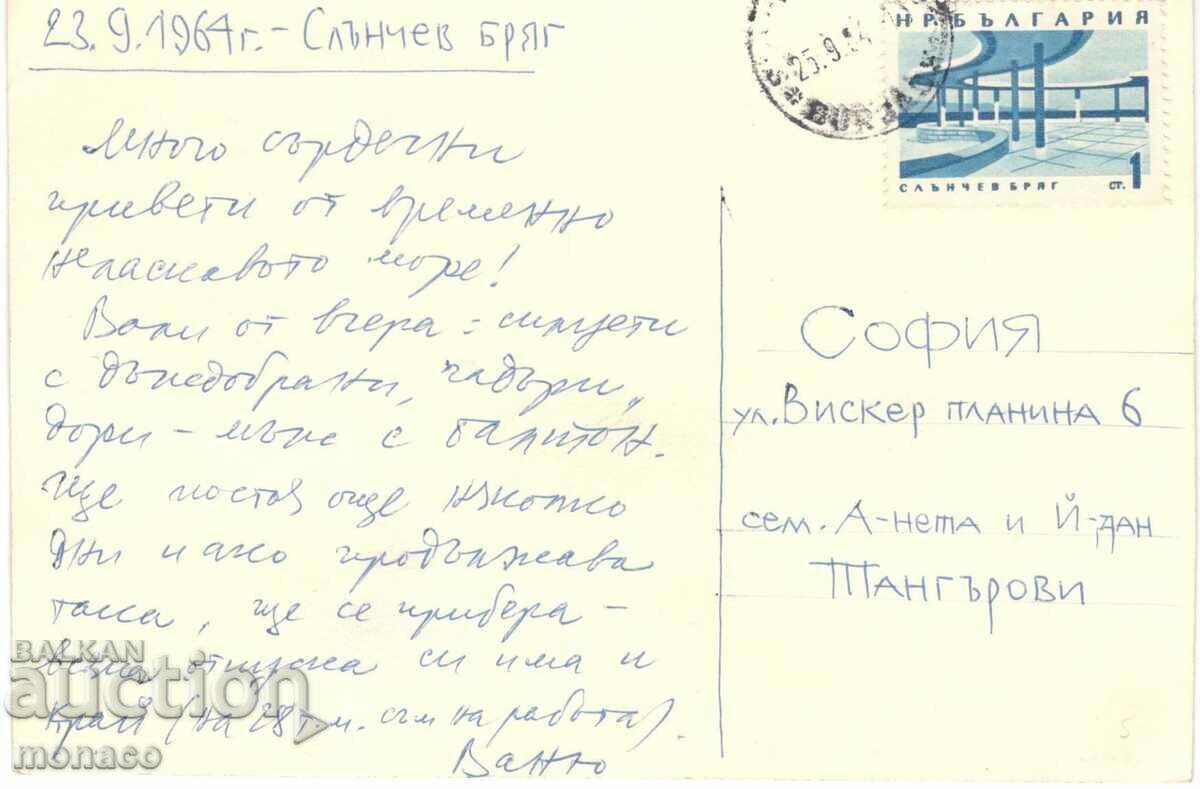 23.9.1964г. – Слънчев бряг
Много сърдечни
привети от временно
неласкавото море!
Вали от вчера – силуети
с дъждобрани, чадъри,
дори – мъж с балтон.
Ще постоя още няколко
дни и ако продължава
така, ще се прибера –
всяка отпуска си има и
край (на 28 т.м. съм на работа).
Ваню
25.9.64
BURGAS
НР. БЪЛГАРИЯ
СЛЪНЧЕВ БРЯГ СТ. 1
СОФИЯ
ул. Вискер планина 6
сем. А-нета и Й-дан
Тангърови
BALKAN
auction
monaco